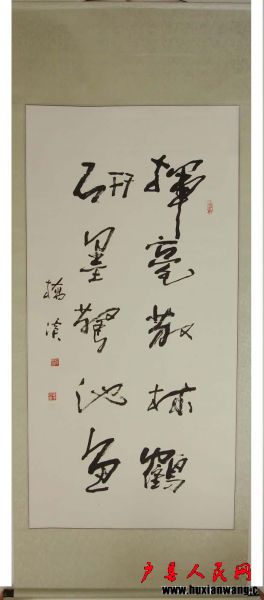 揮毫散林鶴
研墨驚池魚
户县人民网
www.huxianwang.c